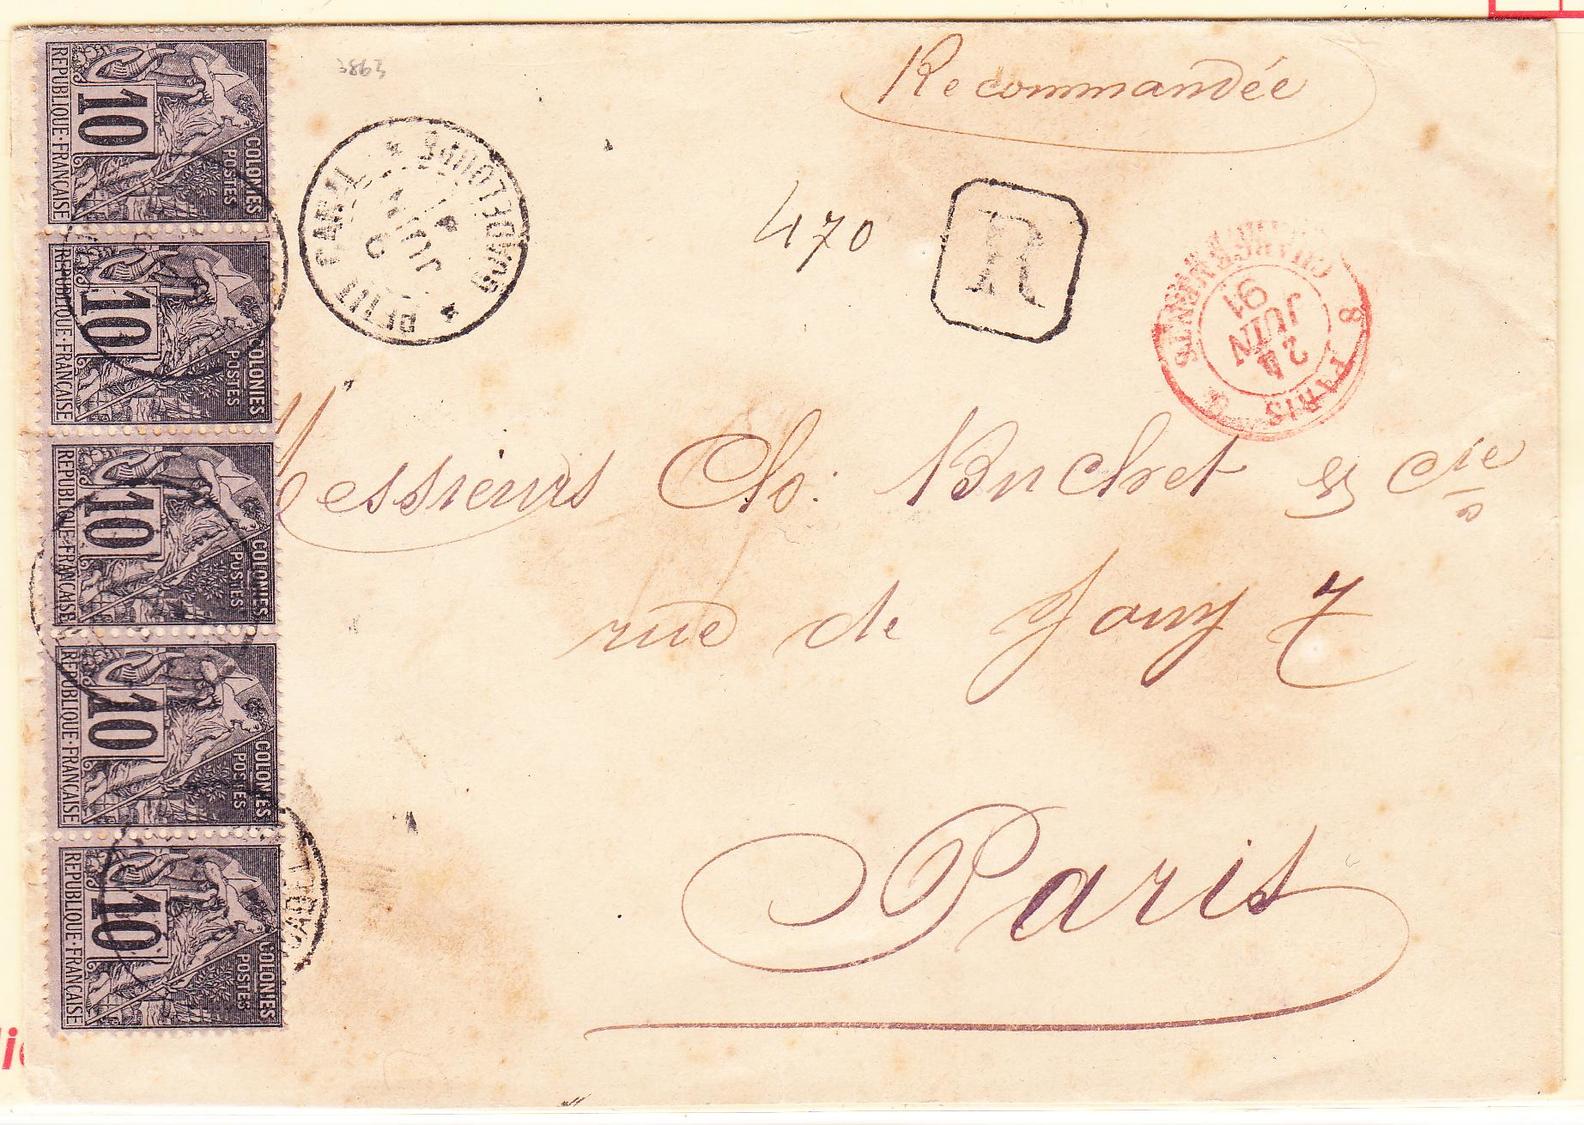 3863
Recommandée
470
R
PETIT CANAL
GUADELOUPE
9
JUIN
91
CHARGEMENTS
8 PARIS
24
JUIN
91
Messieurs Ch. Buchet & Cie
rue de Jouy 7
Paris
10
COLONIES
POSTES
REPUBLIQUE·FRANÇAISE
10
COLONIES
POSTES
REPUBLIQUE·FRANÇAISE
10
COLONIES
POSTES
REPUBLIQUE·FRANÇAISE
10
COLONIES
POSTES
REPUBLIQUE·FRANÇAISE
10
COLONIES
POSTES
REPUBLIQUE·FRANÇAISE